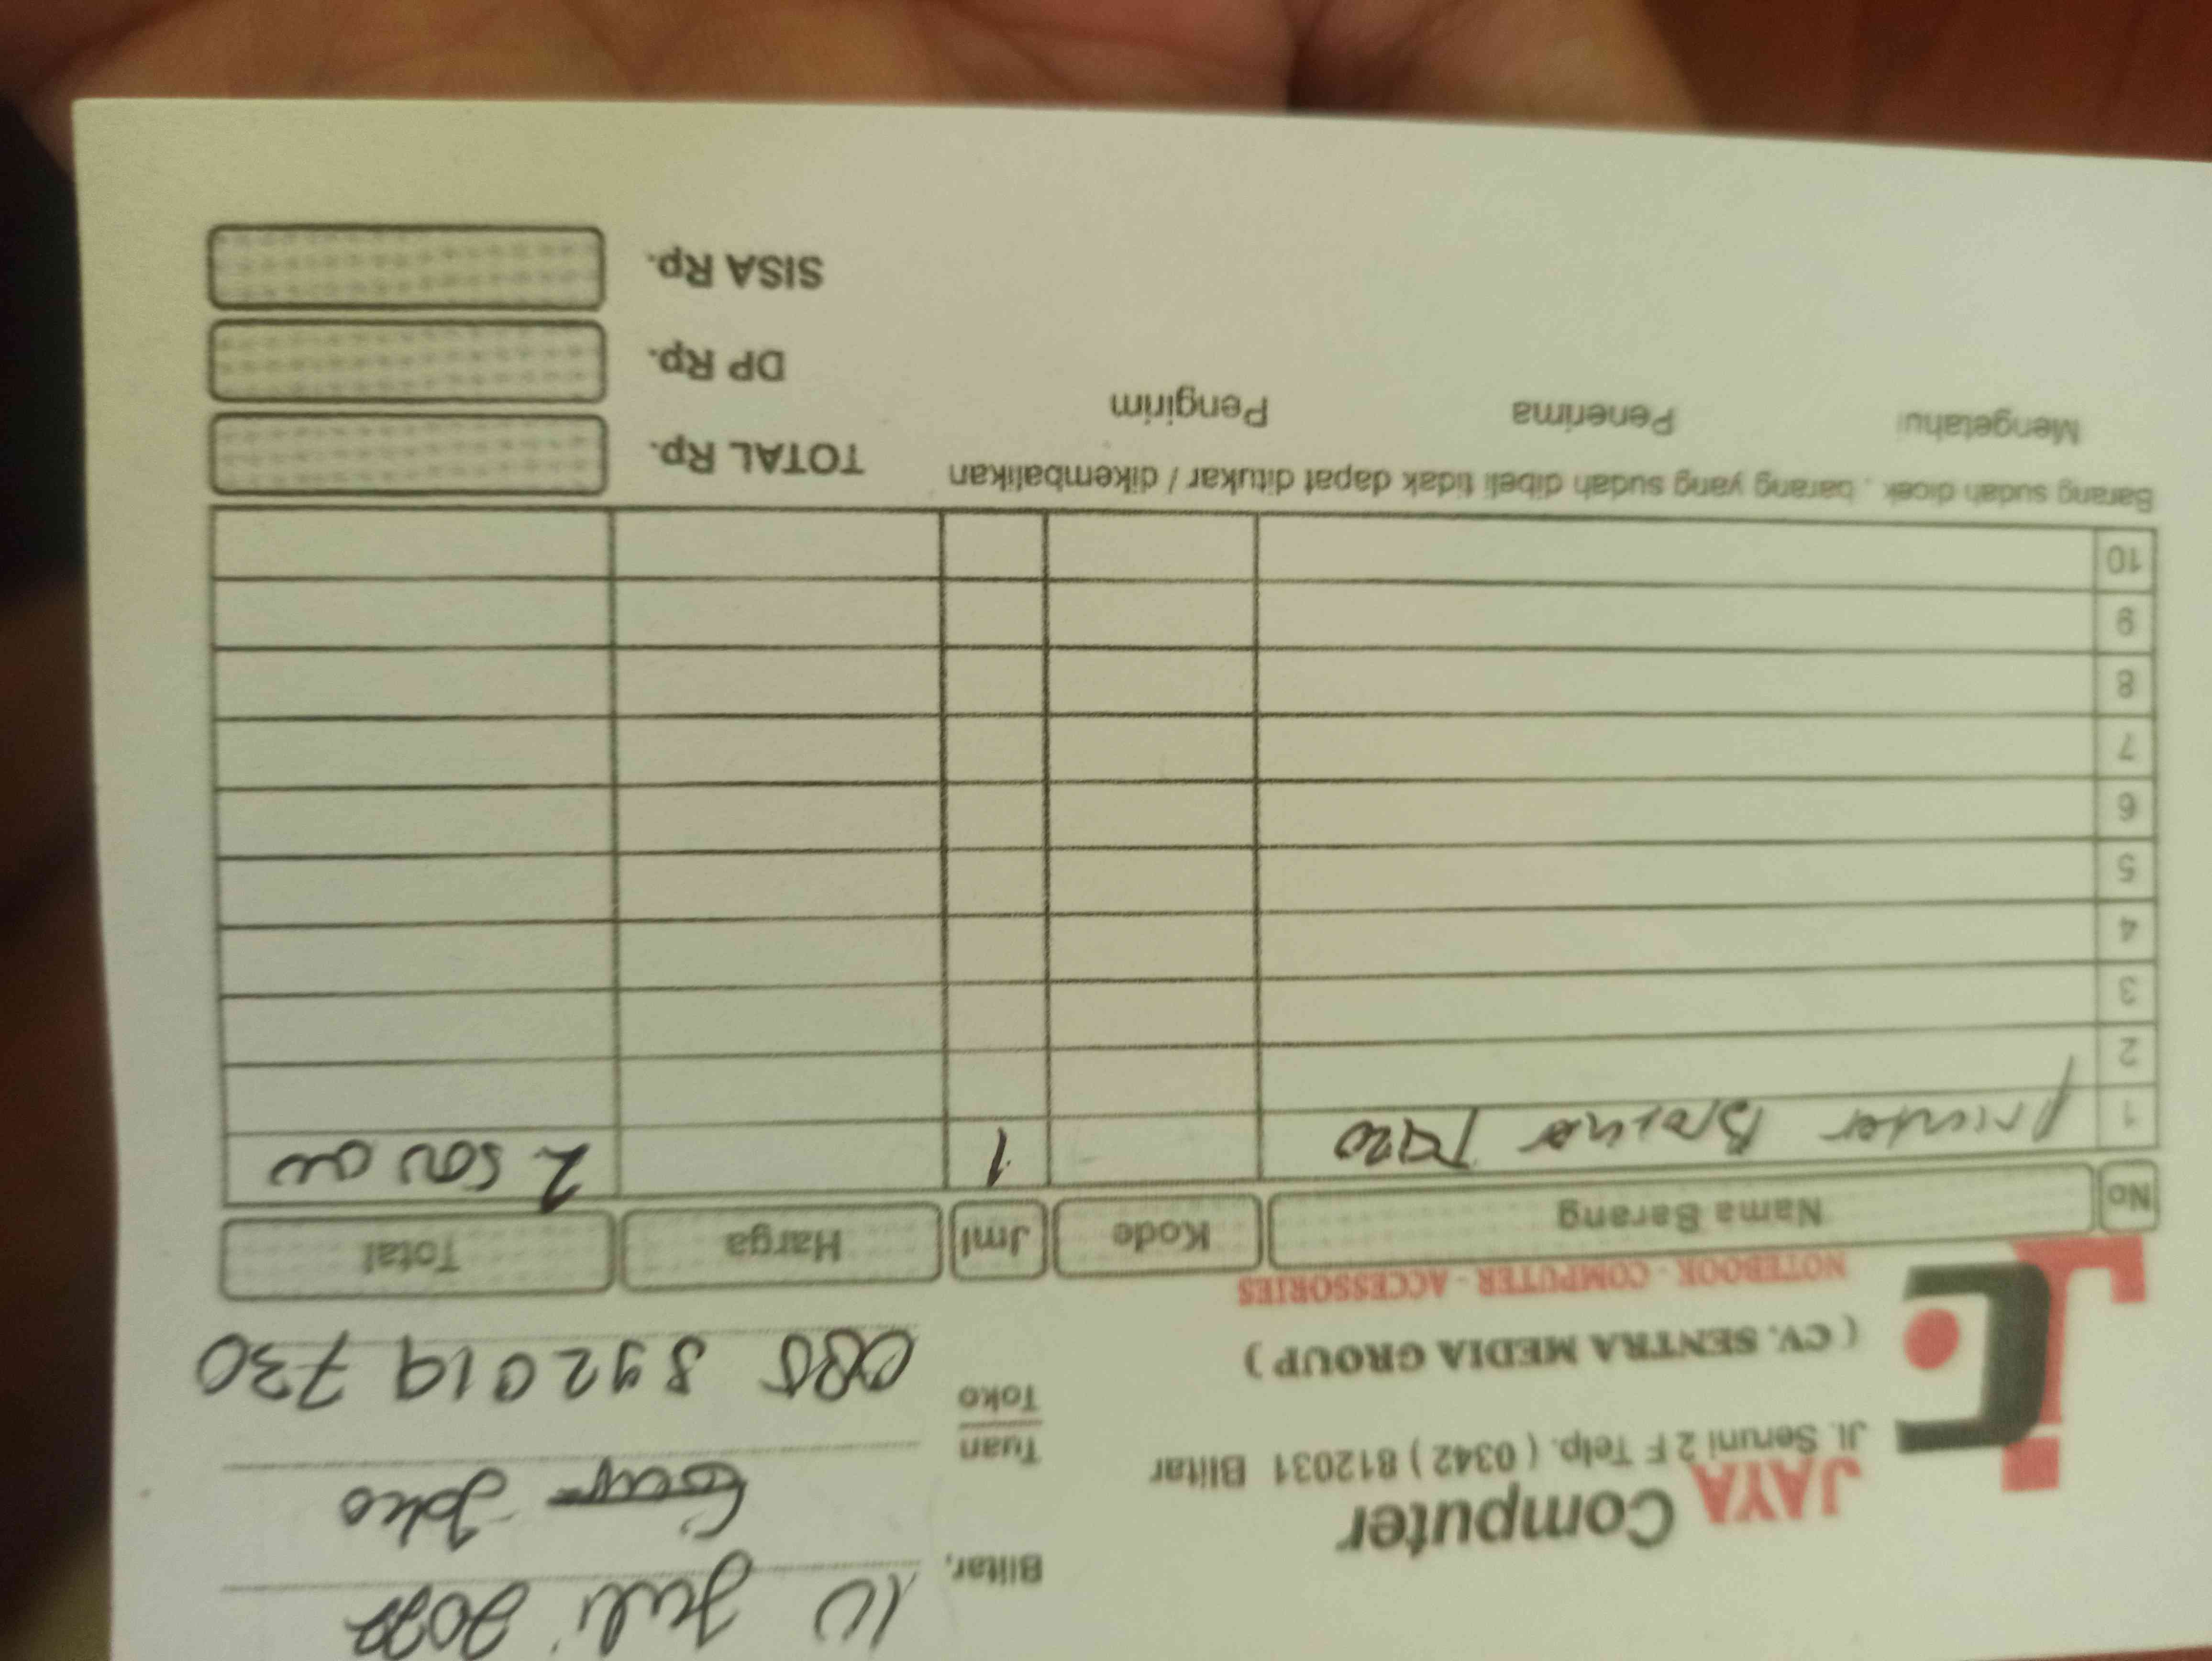 JAYA Computer
Jl. Seruni 2 F Telp. ( 0342 ) 812031 Blitar
( CV. SENTRA MEDIA GROUP )
NOTEBOOK - COMPUTER - ACCESSORIES
Blitar, 10 Juli 2022
Tuan
Toko
Joko
085 892019 730
No Nama Barang Kode Jml Harga Total
1 printer Brother 1 2 500 000
2
3
4
5
6
7
8
9
10
Barang sudah dicek , barang yang sudah dibeli tidak dapat ditukar / dikembalikan
Mengetahui Penerima Pengirim
TOTAL Rp.
DP Rp.
SISA Rp.